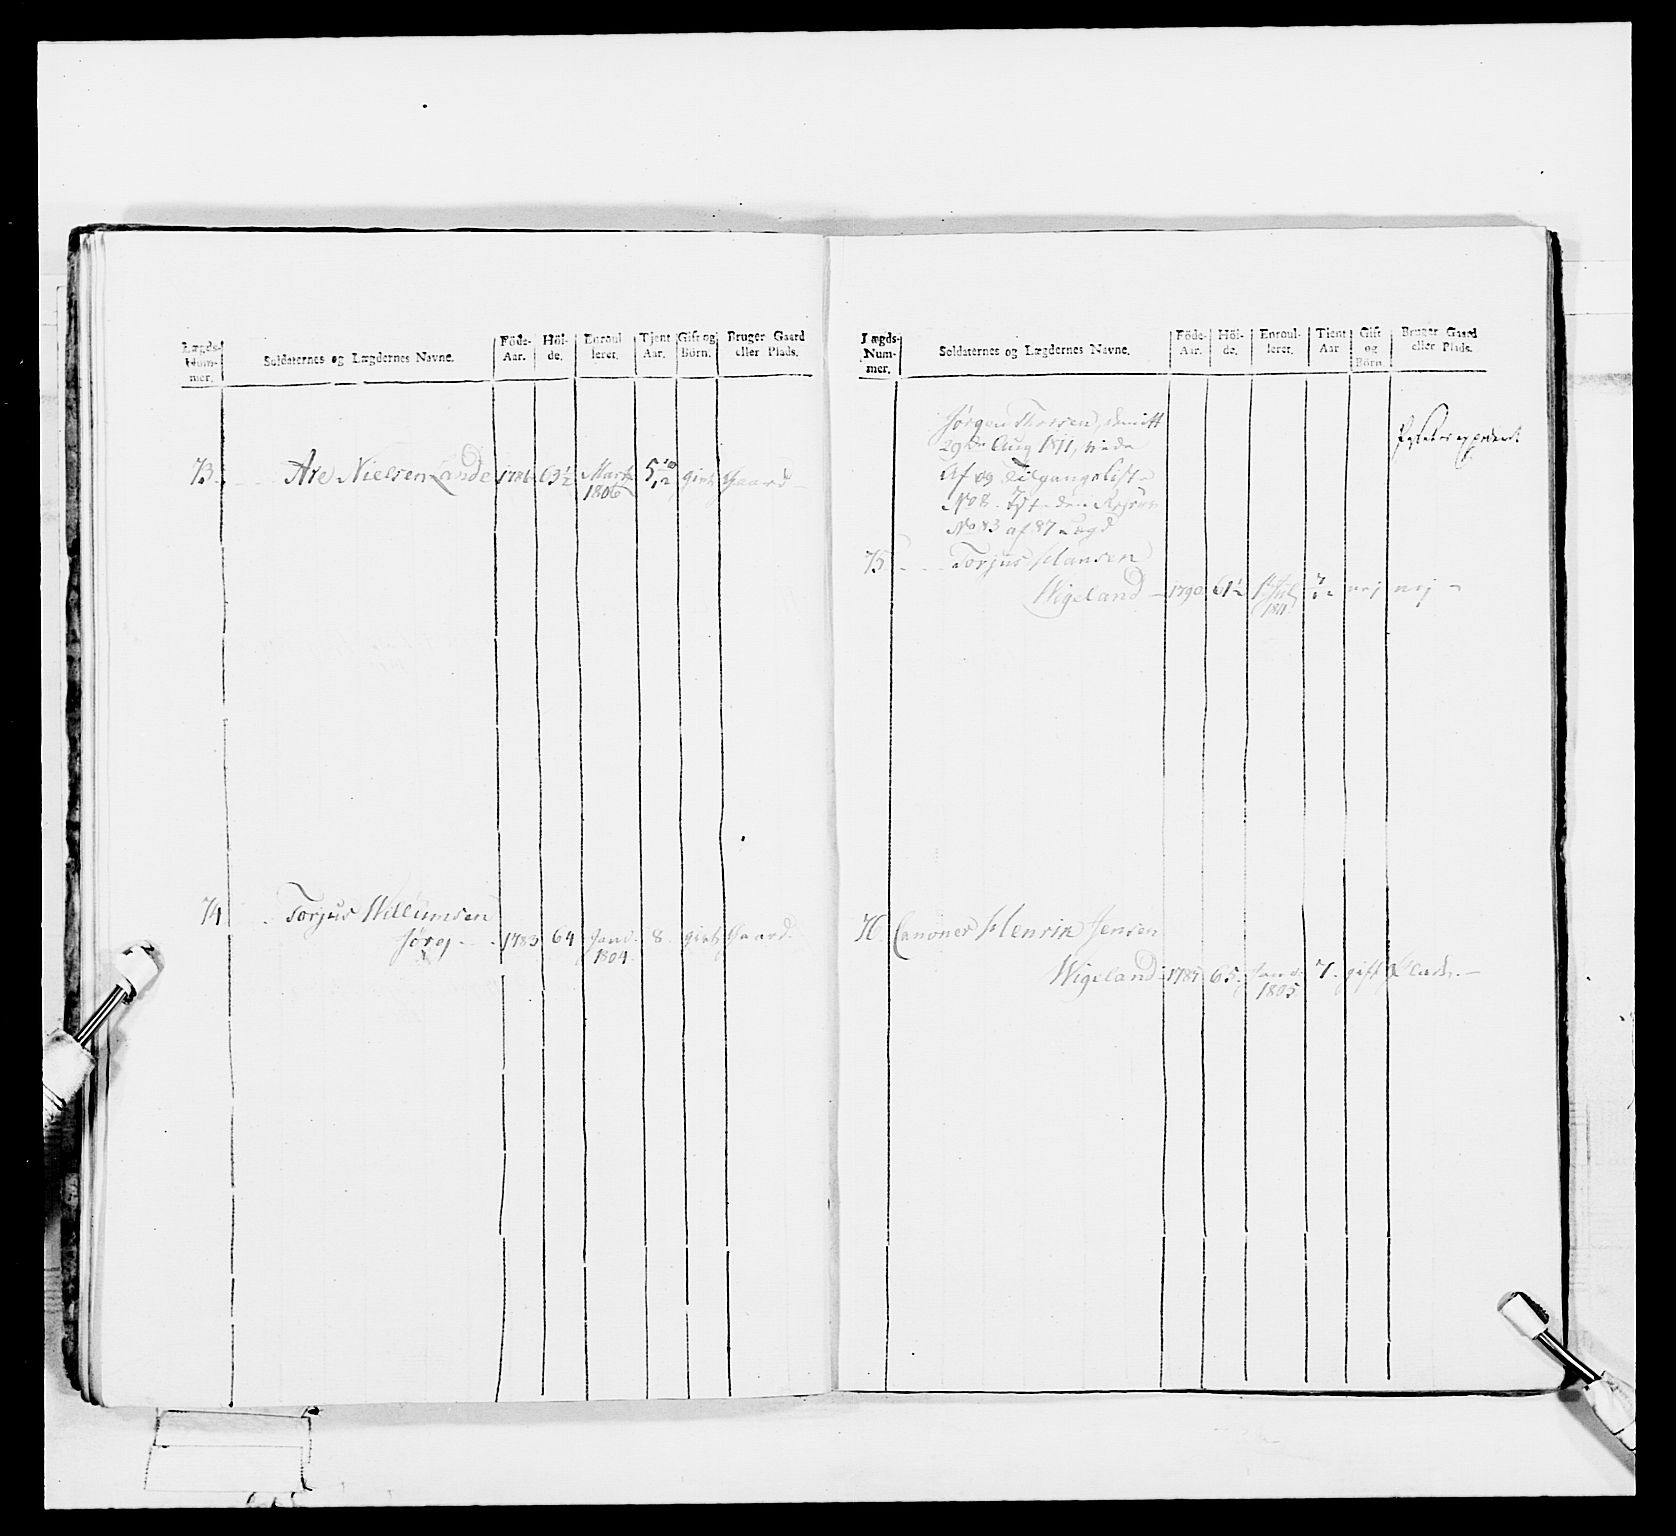 Lægds-
Num-
mer.
Soldaternes og Lægdernes Navne.
Föde-
Aar.
Höi-
de.
Enroul
leret.
Tjent
Aar.
Gift og
Börn.
Bruger Gaard
eller Plads.
73 Are Nielsen Lande 1786 63½ Marts 5 10/12 gift Gaard
1806
74 Torjus Willumsen
1783 64 Janv. 8. gift Gaard.
1804.
Lægds-
Num-
mer.
Soldaternes og Lægdernes Navne.
Föde-
Aar.
Höi-
de.
Enroul-
leret.
Tjent
Aar
Gift
og
Börn
Bruger Gaard
eller Plads.
Jørgen Thorsen, demitt
29de Aug 1811, vide
Af og Tilgangslist
No 8.
No 83 af 87
75 Torjus Hansen
Wigeland 1790 61½ nej nej
1811
76 Canoner Henrik Jensen
Wigeland 1785 65. Janv. 7. gift Plads.
1805